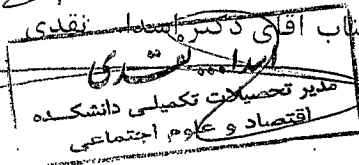 جناب آقای دکتر اسدا... نقدی
اسدا... نقدی
مدیر تحصیلات تکمیلی دانشکده
اقتصاد و علوم اجتماعی